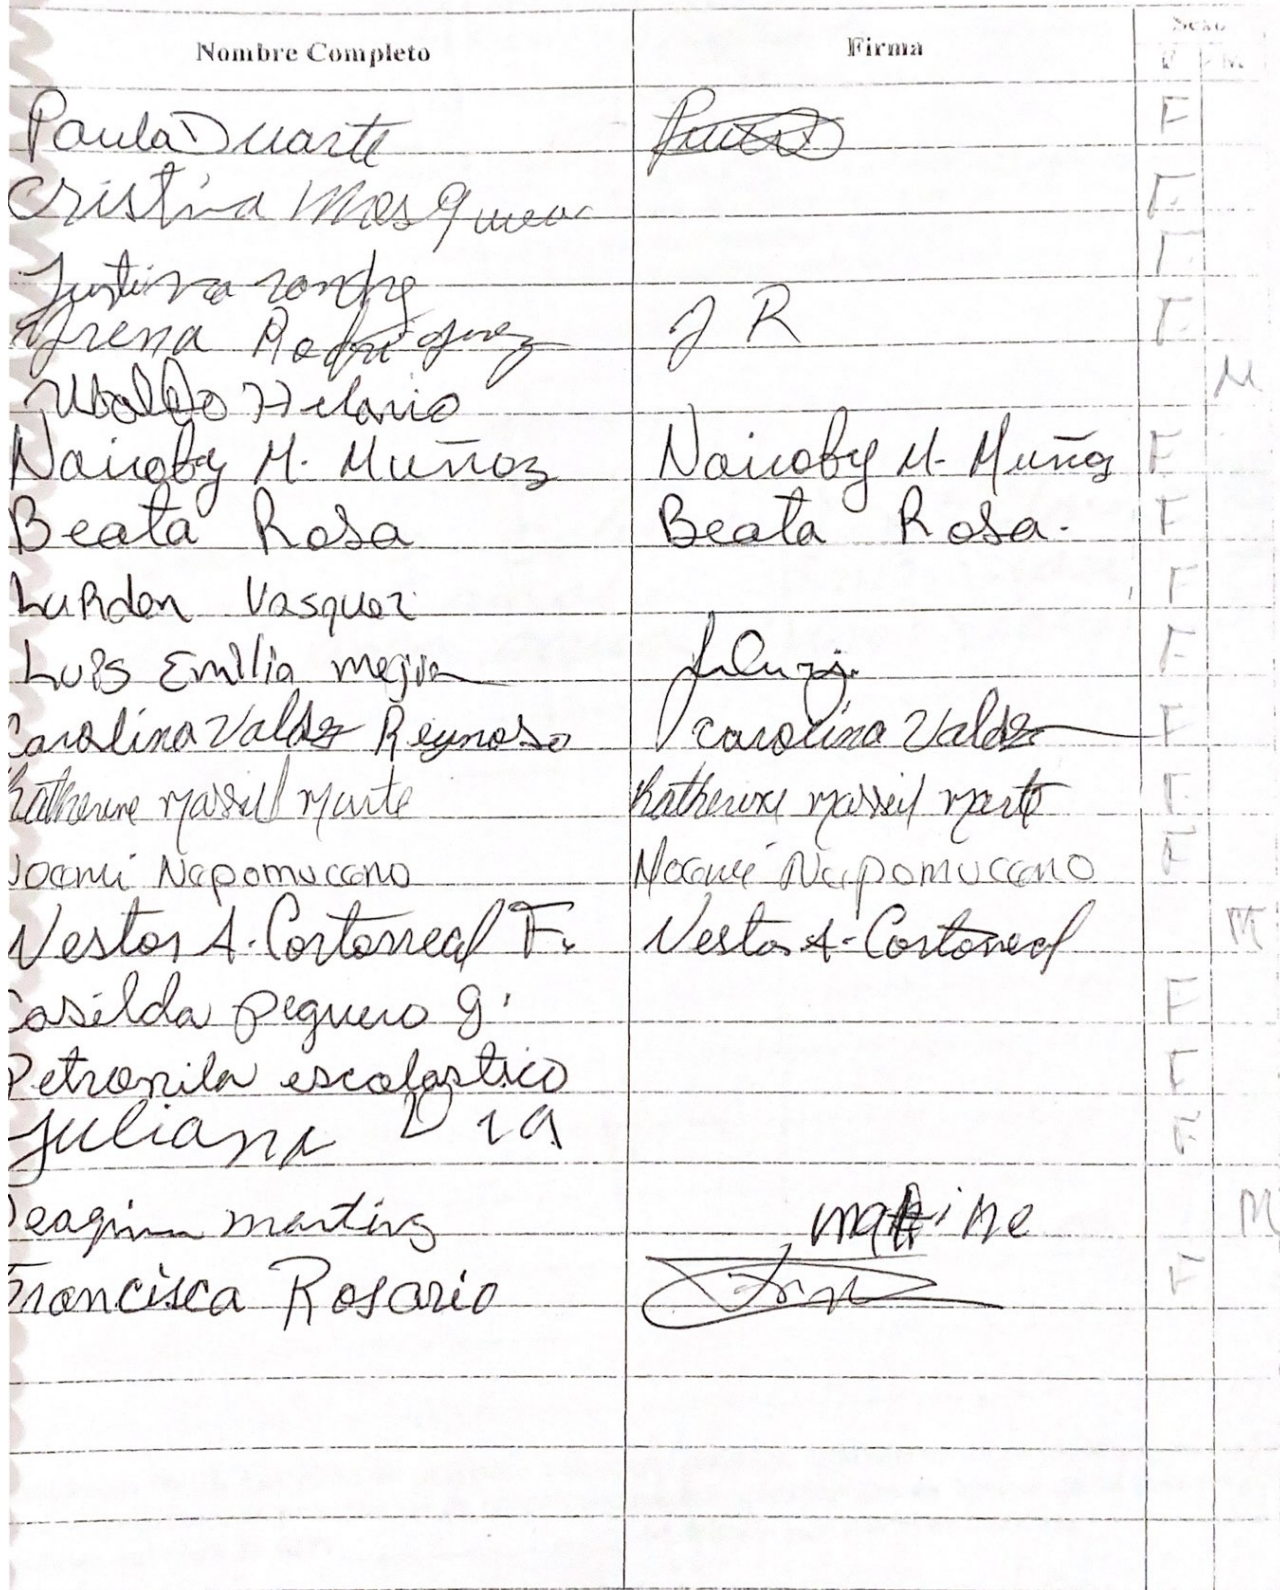 Sexo
Nombre Completo Firma
F M
Paula Duarte F
Cristina Mosquea F
Justina F
Yrena Rodriguez J R F
Ubaldo Hilario M
Nairoby M. Muñoz Nairoby M. Muñoz F
Beata Rosa Beata Rosa. F
Lurdon Vasquez F
Luis Emilia mejia F
Carolina Valdez Reynoso Carolina Valdez F
Katherine Massiel Marte Katherine Massiel Marte F
Noemi Nepomuceno F
Nestor A. Cortorreal F. Nestor A. Cortorreal M
Casilda peguero g. F
Petronila escolastico F
Juliana F
martinez M
Francisca Rosario F